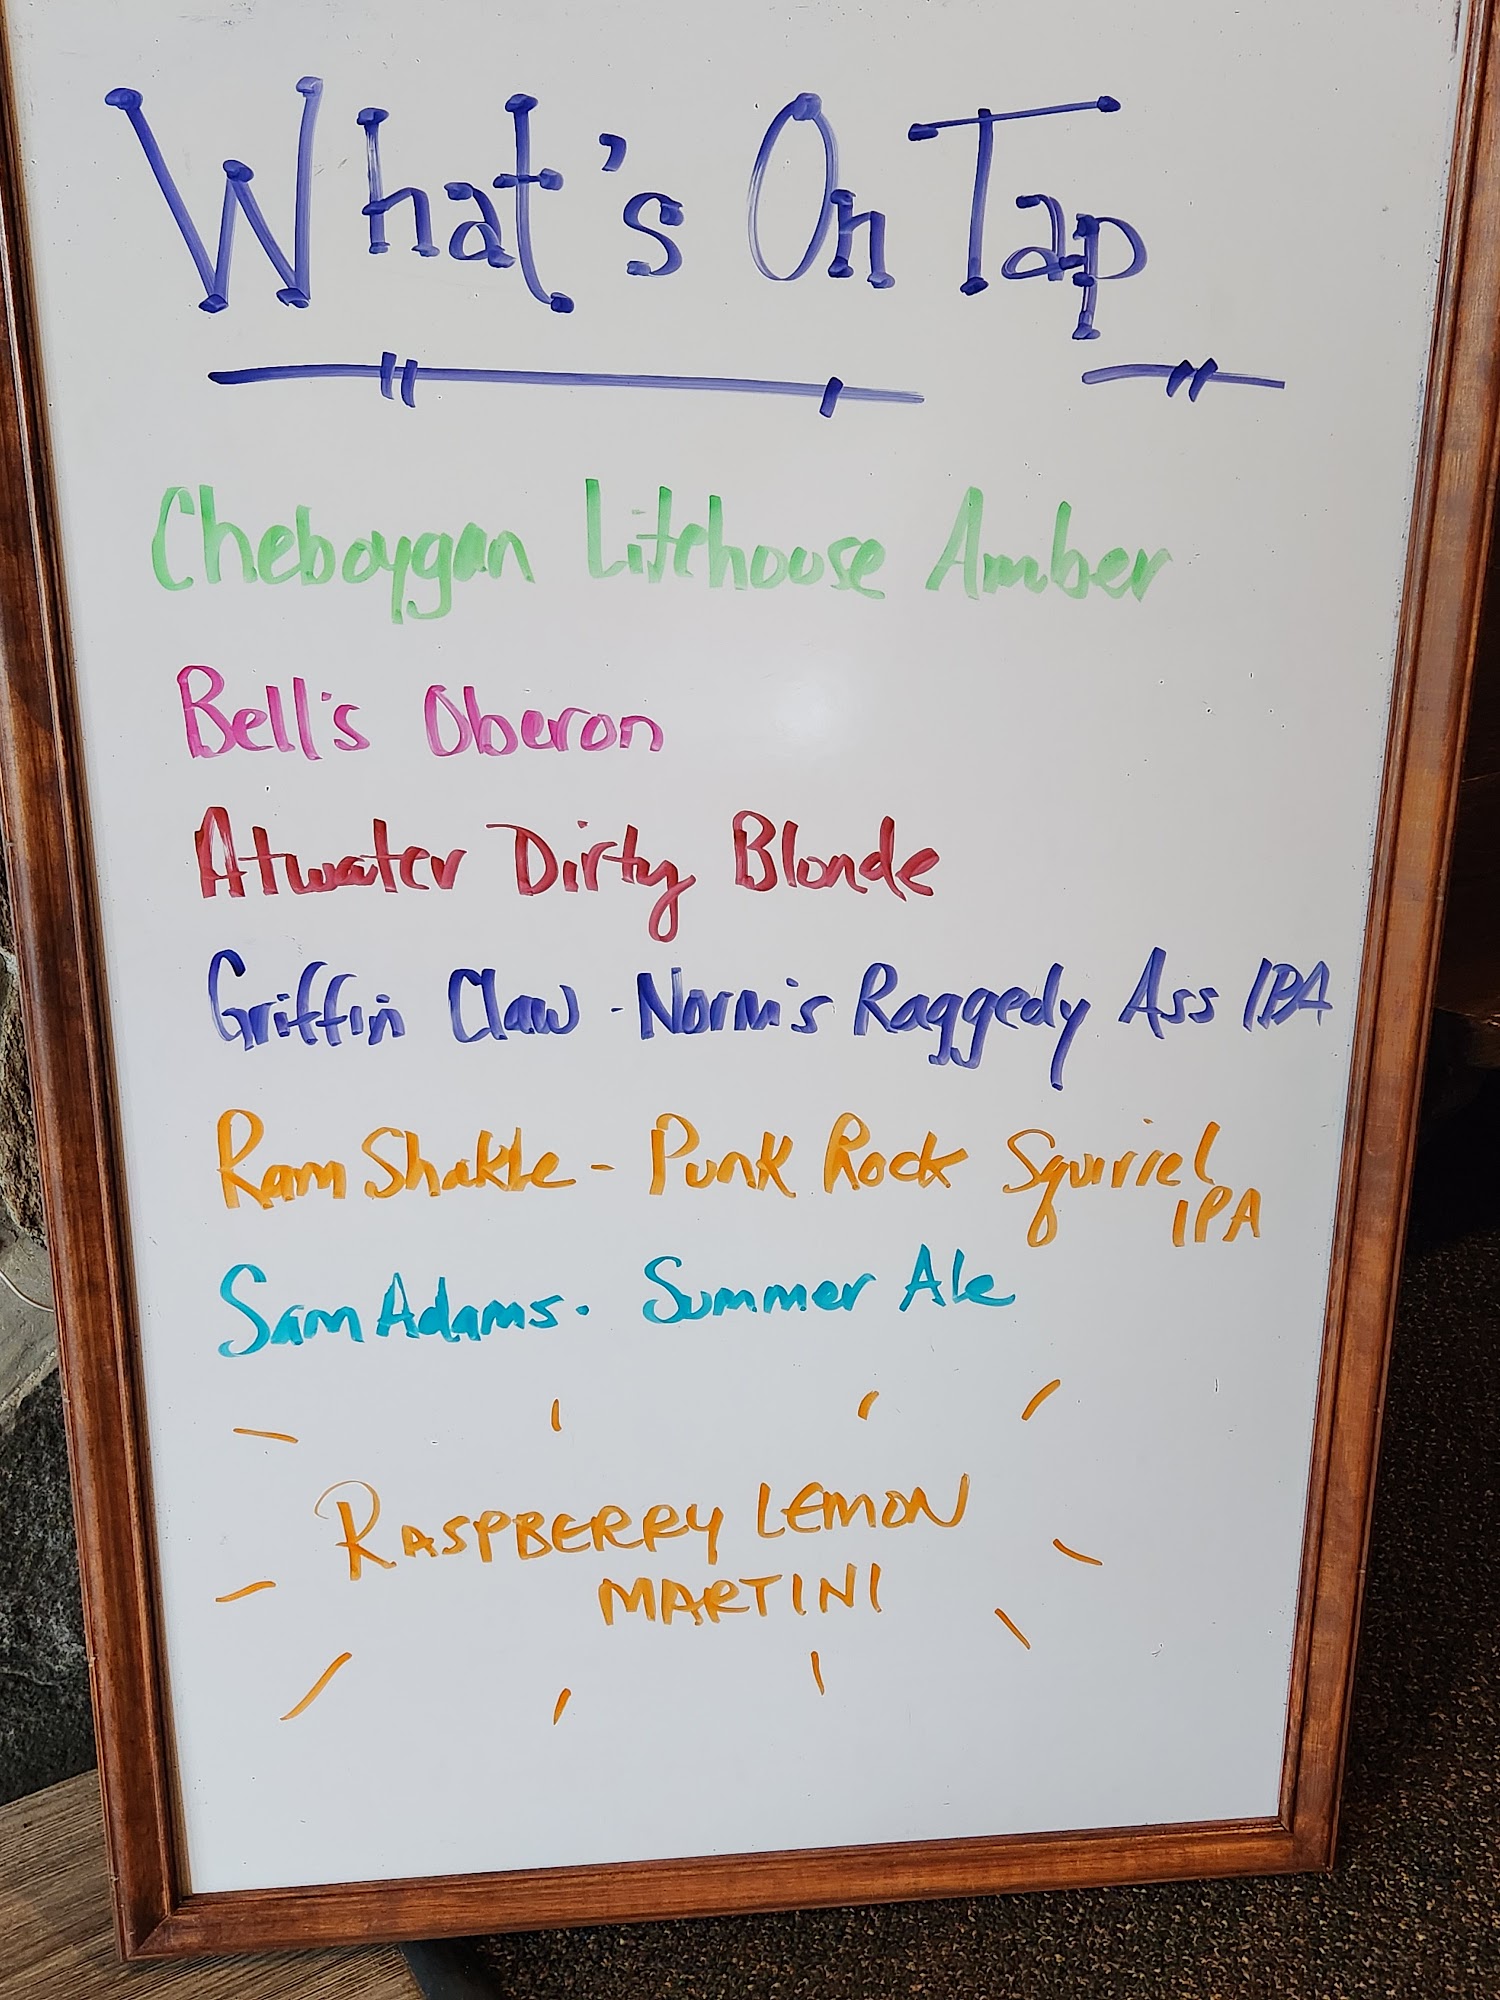 What's On Tap
Cheboygan Litehouse Amber
Bell's Oberon
Atwater Dirty Blonde
Griffin Claw - Norm's Raggedy Ass IPA
Ram Shakle - Punk Rock Squirrel
IPA
Sam Adams. Summer Ale
RASPBERRY LEMON
MARTINI